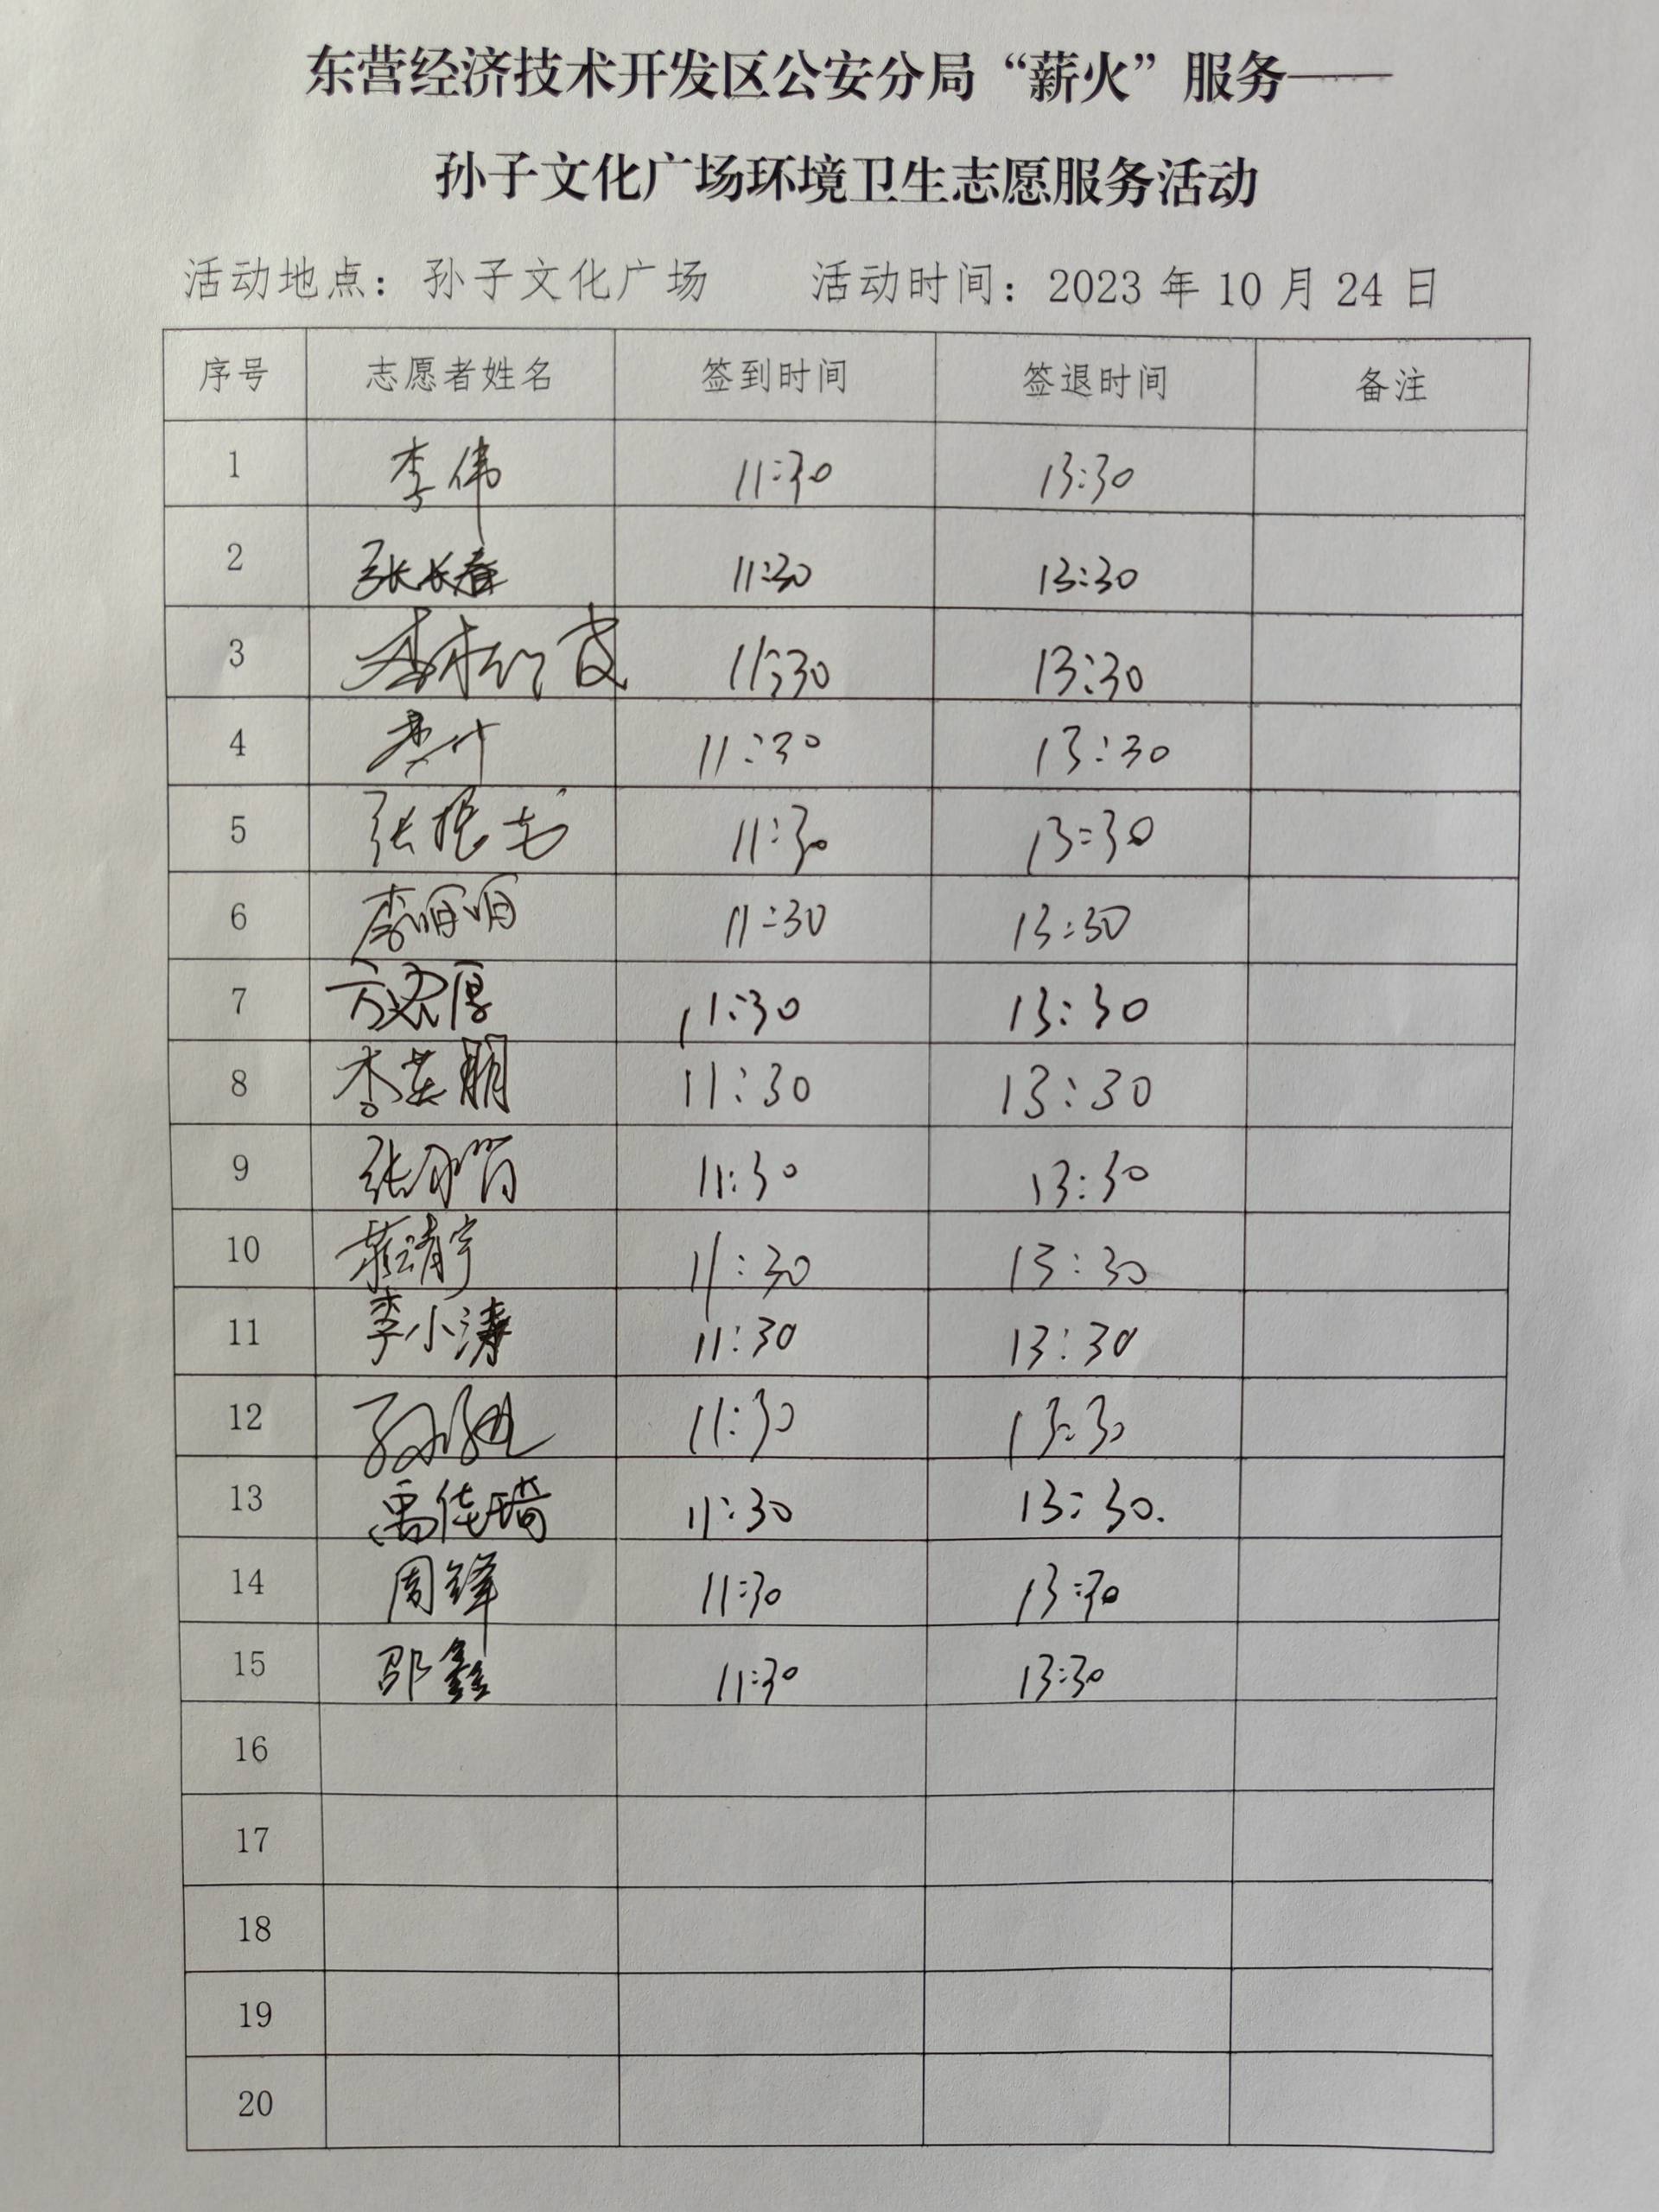 东营经济技术开发区公安分局“薪火”服务——
孙子文化广场环境卫生志愿服务活动
活动地点：孙子文化广场 活动时间：2023年10月24日
序号 志愿者姓名 签到时间 签退时间 备注
1 李伟 11:30 13:30
2 张长春 11:30 13:30
3 11:30 13:30
4 11:30 13:30
5 张振 11:30 13:30
6 李明明 11:30 13:30
7 11:30 13:30
8 李英朋 11:30 13:30
9 张 11:30 13:30
10 靖宇 11:30 13:30
11 李小涛 11:30 13:30
12 孙 11:30 13:30
13 禹佳 11:30 13:30.
14 周锋 11:30 13:30
15 邵鑫 11:30 13:30
16
17
18
19
20